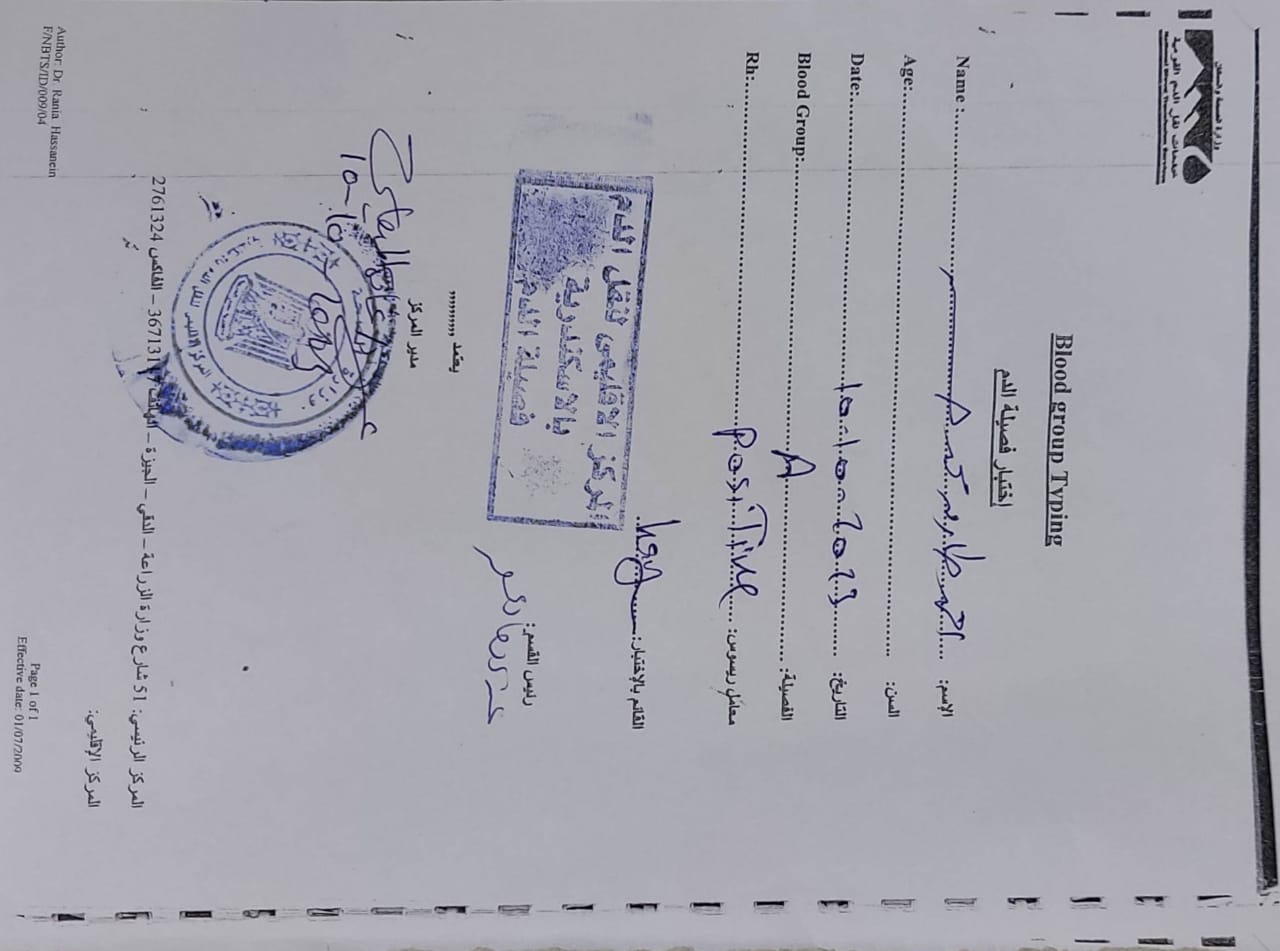 وزارة الصحة والسكان
خدمات نقل الدم القومية
National Blood Transfusion Services
Blood group Typing
إختبار فصيلة الدم
Name : احمد طارق الإسم:
Age: السن:
Date: 10-10-2023 التاريخ:
Blood Group: A الفصيلة:
Rh: positive معامل ريسوس:
القائم بالإختبار:
المركز الاقليمى لنقل الدم
بالاسكندرية
فصيلة الدم
رئيس القسم:
يعتمد ,,,,,,,,,,
مدير المركز
10-10-2023
وزارة الصحة
المركز الاقليمى لنقل الدم بالاسكندرية
المركز الرئيسي: 51 شارع وزارة الزراعة – الدقي – الجيزة – الهاتف 36713117 – الفاكس 2761324
المركز الإقليمي:
Author: Dr. Rania Hassanein
F/NBTS/ID/009/04
Page 1 of 1
Effective date: 01/07/2009